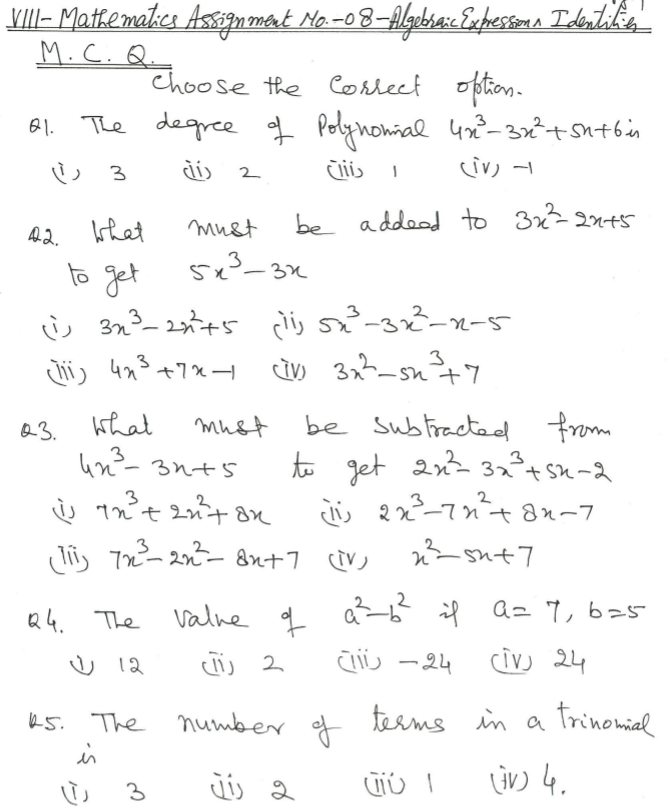 VIII- Mathematics Assignment No.-08-Algebraic Expressions Identities
M.C.Q.
Choose the Correct option.
Q1. The degree of Polynomial 4x³-3x²+5x+6 is
(i) 3 (ii) 2 (iii) 1 (iv) -1
Q2. What must be added to 3x²-2x+5
to get 5x³-3x
(i) 3x³-2x²+5 (ii) 5x³-3x²-x-5
(iii) 4x³+7x-1 (iv) 3x²-5x³+7
Q3. What must be subtracted from
4x³-3x+5 to get 2x²-3x³+5x-2
(i) 7x³+2x²+8x (ii) 2x³-7x²+8x-7
(iii) 7x³-2x²-8x+7 (iv) x²-5x+7
Q4. The Value of a²-b² if a=7, b=5
(i) 12 (ii) 2 (iii) -24 (iv) 24
Q5. The number of terms in a trinomial
is
(i) 3 (ii) 2 (iii) 1 (iv) 4.